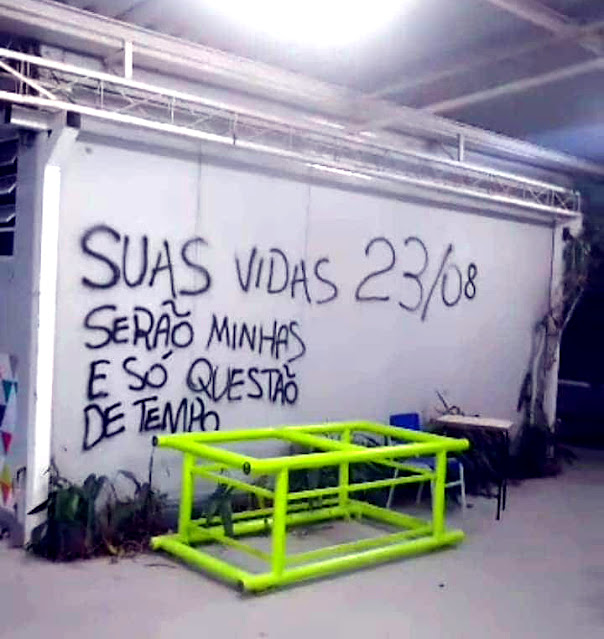 SUAS VIDAS 23/08
SERÃO MINHAS
E SÓ QUESTÃO
DE TEMPO